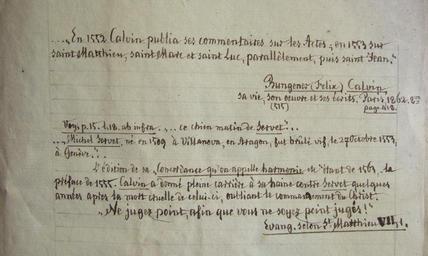 ... „En 1552 Calvin publia ses commentaires sur les Actes; en 1553 sur
saint Matthieu, saint Marc et saint Luc, parallèlement, puis saint Jean."
Bungener (Felix) Calvin,
sa vie, son oeuvre et ses écrits. Paris, 1862. 8º
(515) page 418.
Voy. p. 15. l. 18. ab infra ... ce chien matin de Servet"...
... Michel Servet, né en 1509 à Villanova, en Aragon, fut brûlé vif, le 27 Octobre 1553,
à Genève...
L'édition de sa „Concordance qu'on appelle harmonie" etc. étant de 1563, la
préface de 1555. Calvin a donné pleine carrière à sa haine contre Servet quelques
années après la mort cruelle de celui-ci, oubliant le commandement du Christ.
„Ne jugez point, afin que vous ne soyez point jugés!"
Evang. selon St. Matthieu VII, 1.